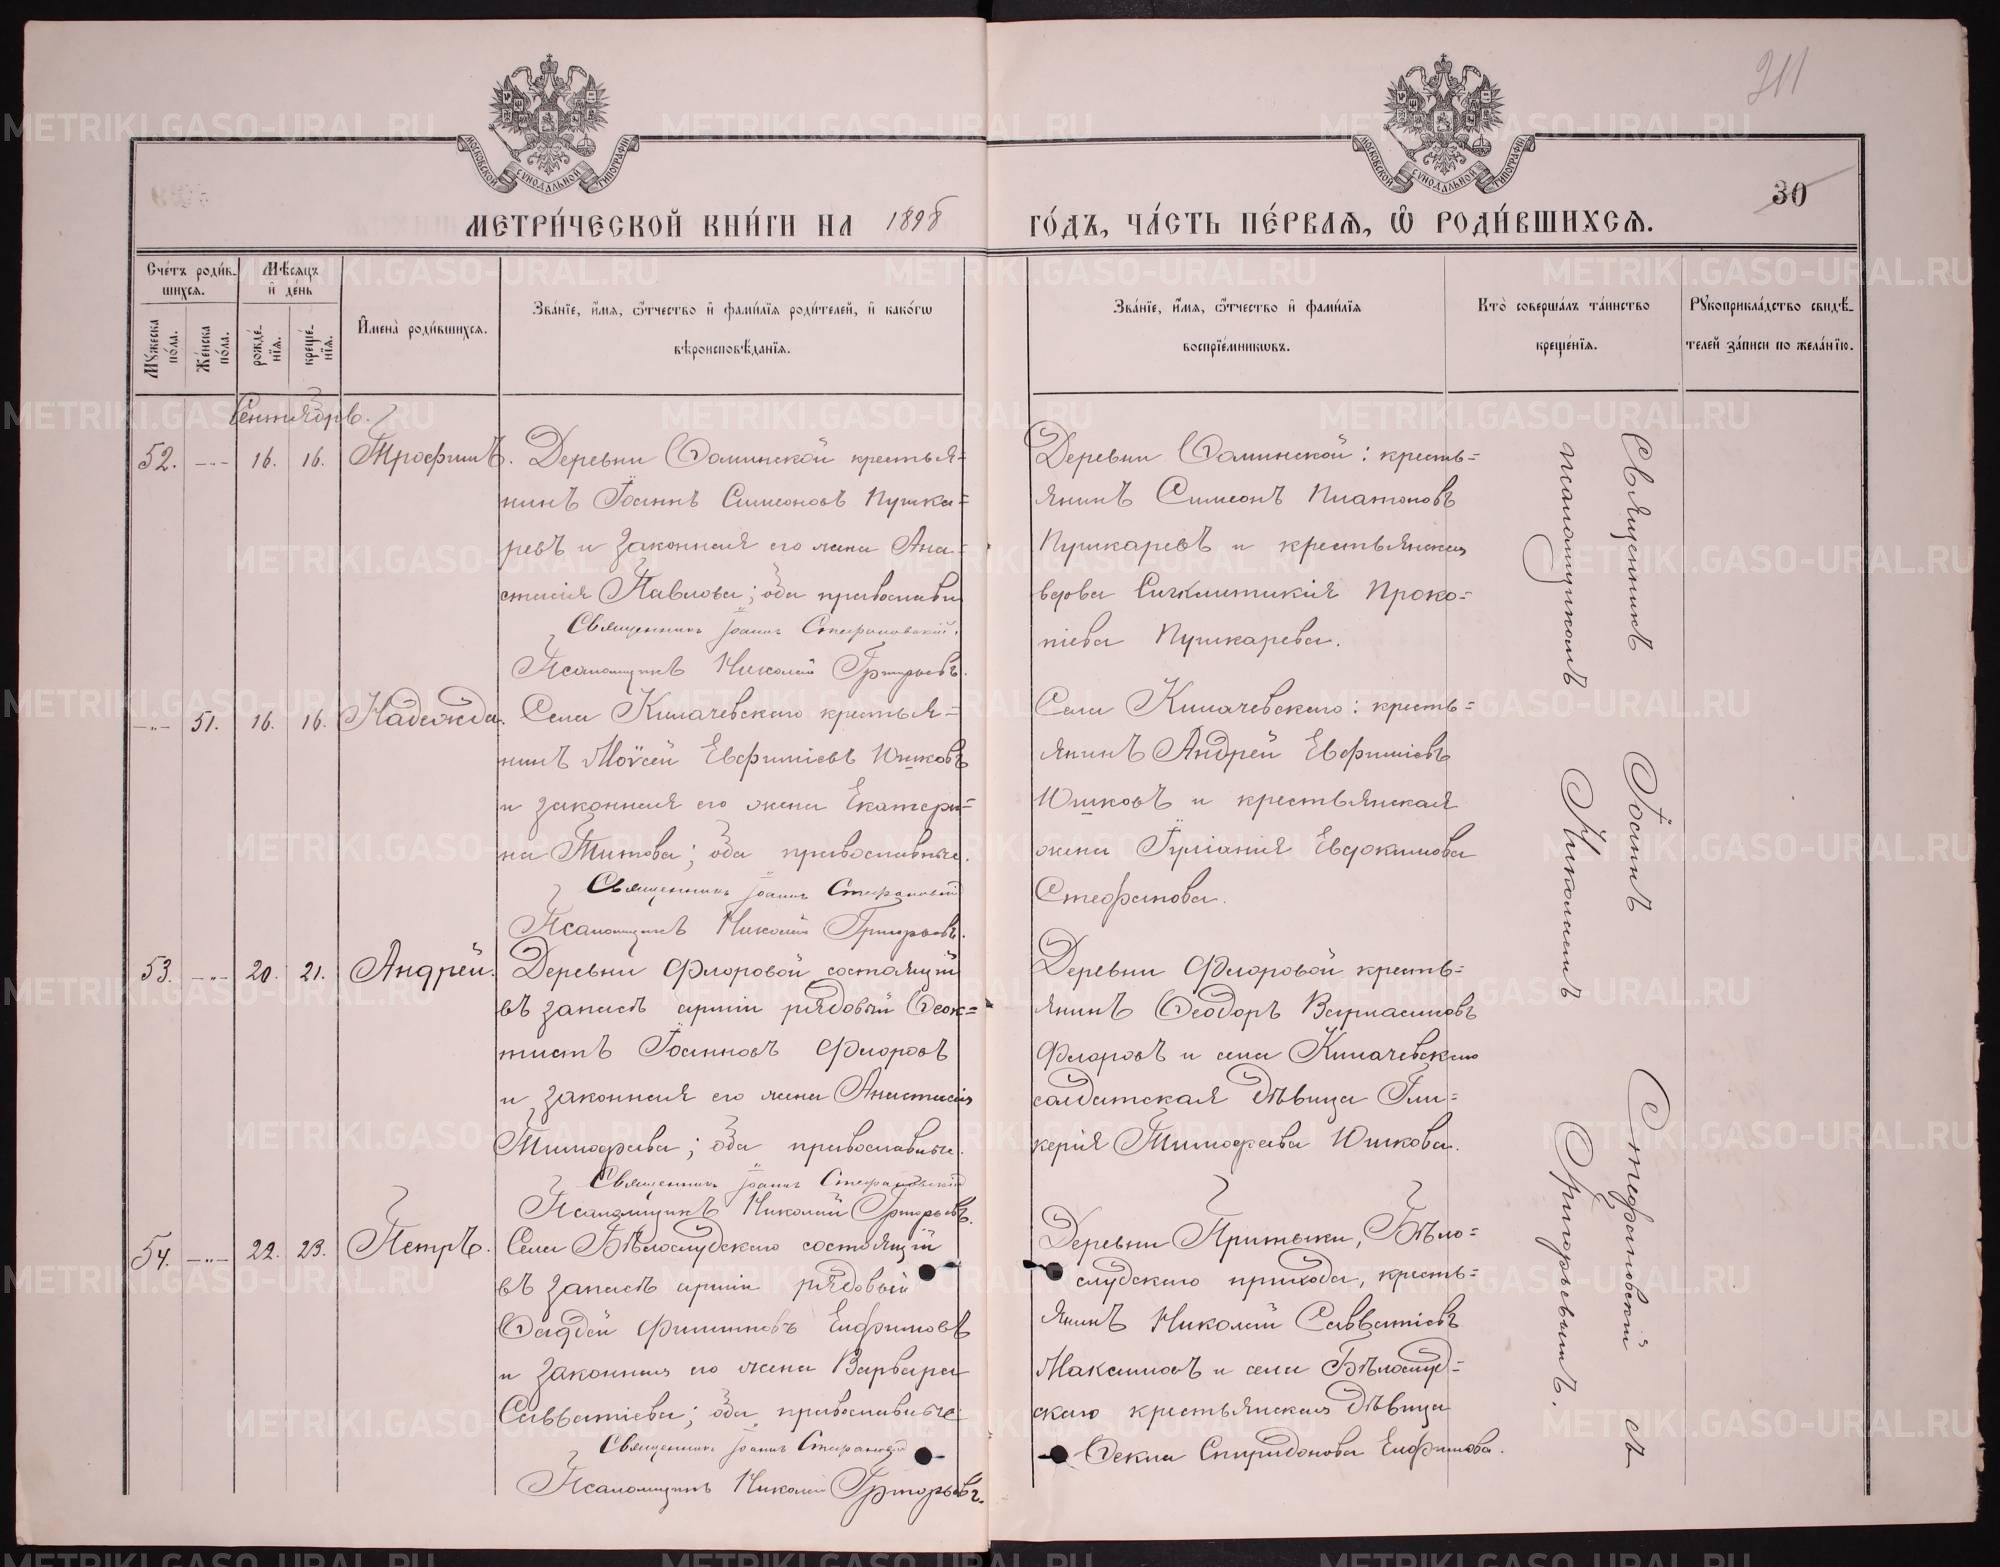 311
30
МОСКОВСКОЙ СѴНОДАЛЬНОЙ ТИПОГРАФІИ
МОСКОВСКОЙ СѴНОДАЛЬНОЙ ТИПОГРАФІИ
МЕТРИ́ЧЕСКОЙ КНИ́ГИ НА 1898 ГО́ДЪ, ЧА́СТЬ ПЕ́РВАЯ, Ѿ РОДИ́ВШИХСЯ.
Сче́тъ роди́в-
шихся.
Мꙋжеска по́ла.
Же́нска по́ла.
Мѣсяцъ и де́нь
рожде́-
нїя.
креще́-
нїя.
Имена̀ роди́вшихся.
Зва́нїе, и́мя, ѻ́тчество и фами́лїя роди́телей, и како́гѡ
вѣроисповѣ́данїя.
Зва́нїе, и́мя, ѻ́тчество и фами́лїя
воспрїе́мникѡвъ.
Кто̀ соверша́лъ та́инство
креще́нїя.
Рꙋкоприкла́дство свидѣ́-
телей за́писи по жела́нїю.
Сентябрь.
52. -„- 16. 16. Трофимъ. Деревни Ѳоминской крестья=
нинъ Іоаннъ Симеоновъ Пушка=
ревъ и законная его жена Ана=
стасія Павлова; оба православн
Священникъ Іоаннъ Стефановскій.
Псаломщикъ Николай Григорьевъ.
Деревни Ѳоминской: кресть=
янинъ Симеонъ Платоновъ
Пушкаревъ и крестьянская
вдова Синклитикія Проко=
піева Пушкарева.
-„- 51. 16. 16. Надежда. Села Килачевскаго крестья=
нинъ Моѵсей Евфиміевъ Юшковъ
и законная его жена Екатери=
на Титова; оба православные.
Священникъ Іоаннъ Стефановскій
Псаломщикъ Николай Григорьевъ.
Села Килачевскаго: кресть=
янинъ Андрей Евфиміевъ
Юшковъ и крестьянская
жена Іуліанія Евдокимова
Стефанова.
53. -„- 20. 21. Андрей. Деревни Флоровой состоящій
въ запасѣ арміи рядовый Ѳеок=
тистъ Іоанновъ Флоровъ
и законная его жена Анастасія
Тимофеева; оба православные.
Священникъ Іоаннъ Стефановскій
Псаломщикъ Николай Григорьевъ.
Деревни Флоровой кресть=
янинъ Ѳеодоръ Варлаамовъ
Флоровъ и села Килачевскаго
солдатская дѣвица Гли=
керія Тимофеева Юшкова.
54. -„- 22. 23. Петръ. Села Бѣлослудскаго состоящій
въ запасѣ арміи рядовый
Ѳаддей Филипповъ Елфимовъ
и законная его жена Варвара
Савватіева; оба православные
Священникъ Іоаннъ Стефановскій
Псаломщикъ Николай Григорьевъ.
Деревни Притыки, Бѣло=
слудскаго прихода, кресть=
янинъ Николай Савватіевъ
Максимовъ и села Бѣлослуд=
скаго крестьянская дѣвица
Ѳекла Спиридонова Елфимова.
Священникъ Іоаннъ Стефановскій съ
псаломщикомъ Николаемъ Григорьевымъ.
METRIKI.GASO-URAL.RU